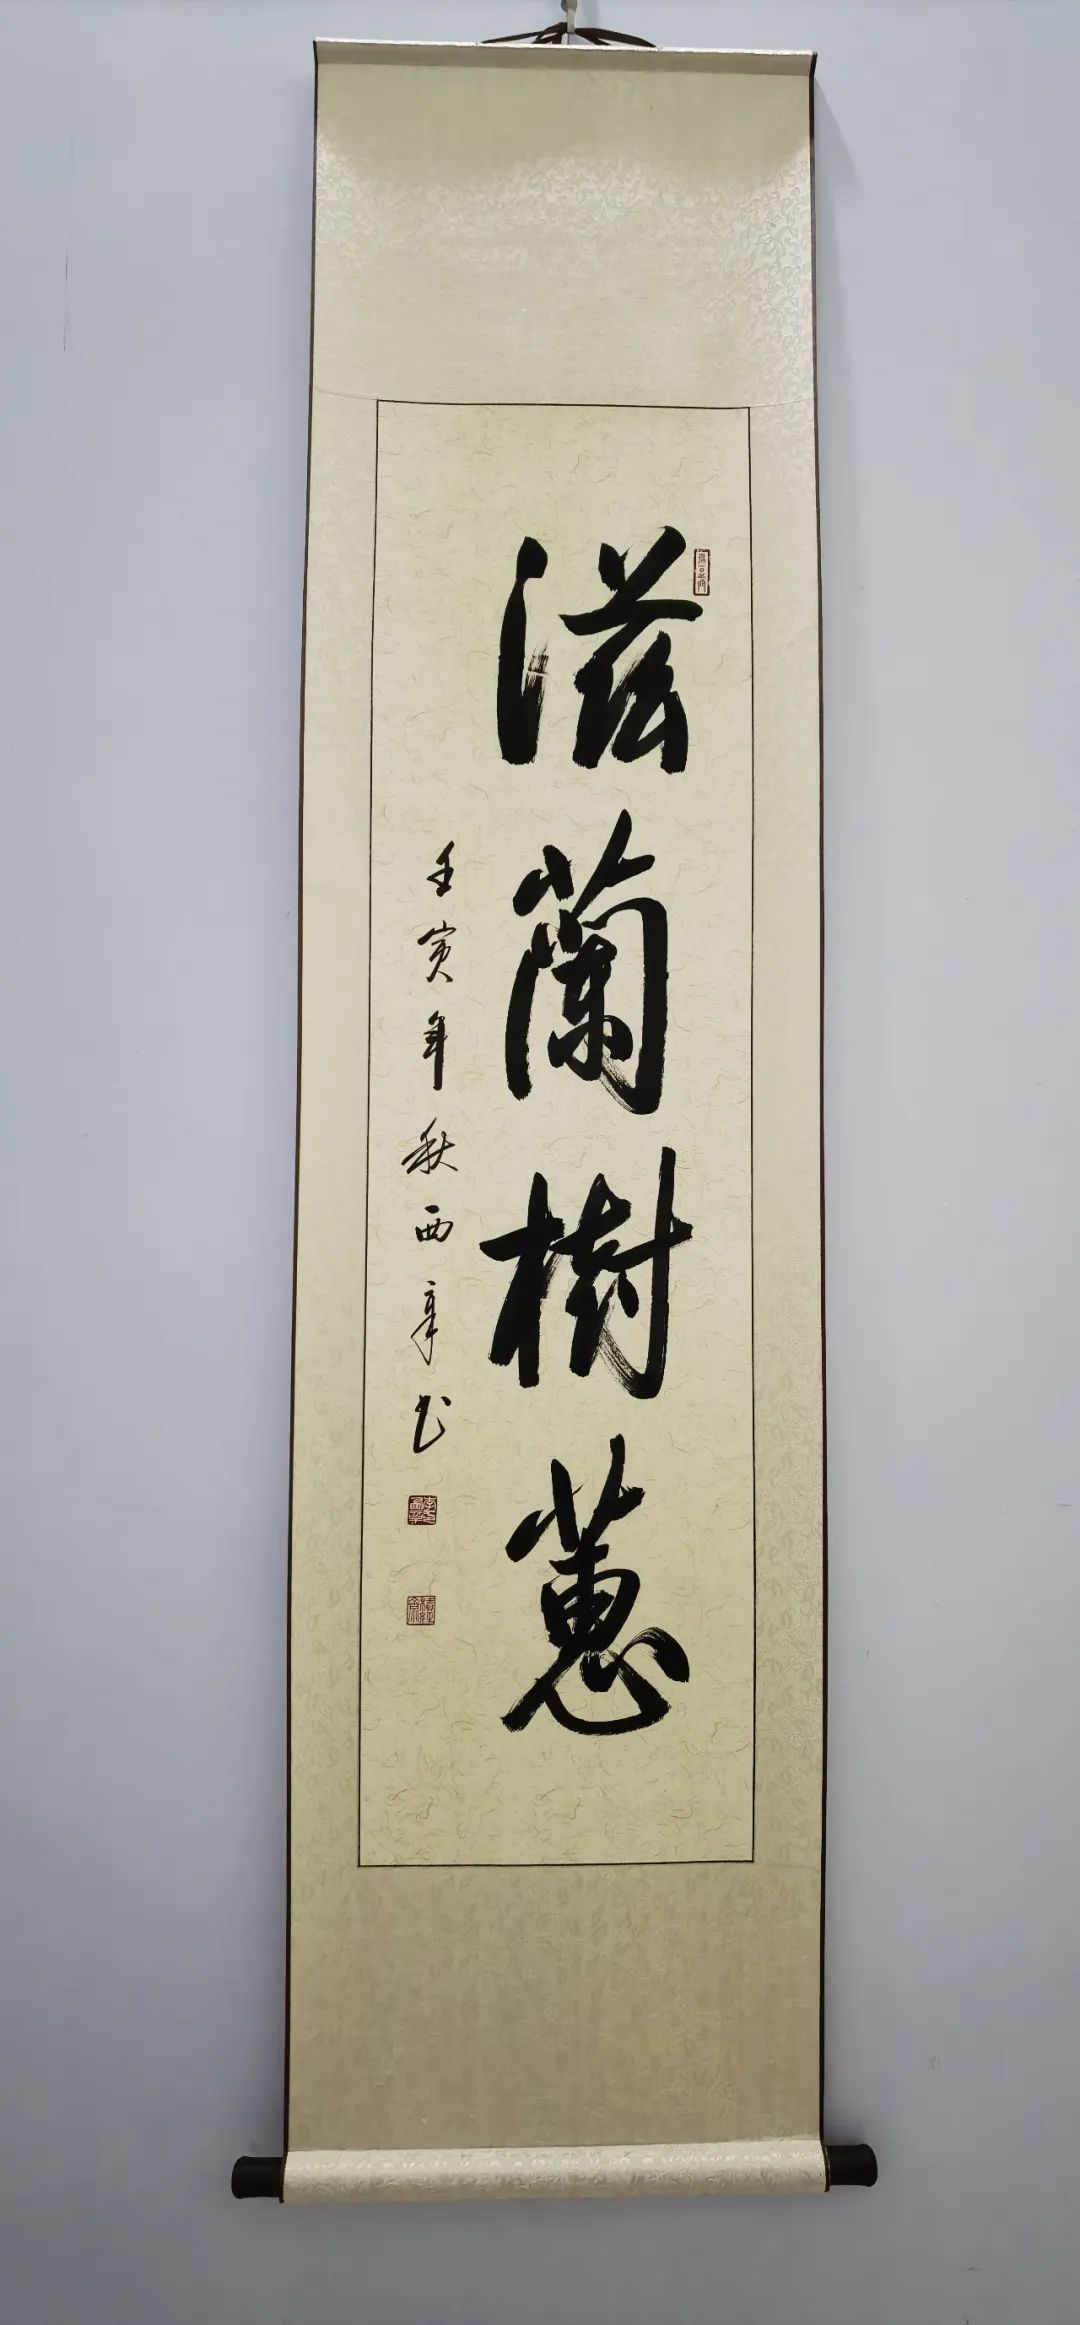 滋蘭樹蕙
壬寅年秋西辛书